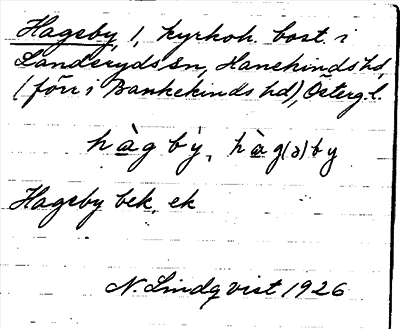 Hageby, 1, kyrkoh. bost. i
Landeryds sn, Hanekinds hd,
(förr i Bankekinds hd), Östergl.
hàgbỳ, hàg(ə)by
Hageby bek, ek
N. Lindqvist 1926